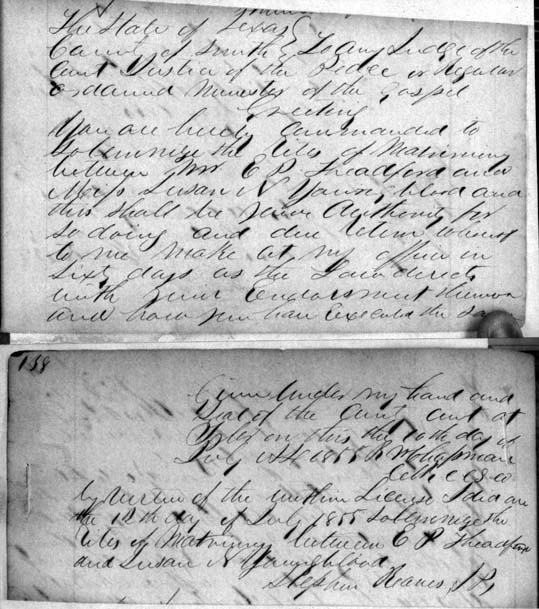 The State of Texas
County of Smith } To Any Judge of the
Court Justice of the Peace or Regular
ordained Minister of the Gospel
Greeting
You are hereby Commanded to
Solemnize the Rites of Matrimony
between Mr C P Theadford and
Miss Susan N Youngblood and
this shall be your Authority for
so doing and due return
to me make at my office in
Sixty days as the Law directs
with your Endorsement thereon
and how you have executed the same
138
Given under my hand and
Seal of the County Court at
Tyler on this the 10th day of
July 1855
Clk C C S Co
by virtue of the within License I did on
the 12th day of July 1855 Solemnize the
Rites of Matrimony between C P Theadford
and Susan N Youngblood
Stephen Reaves J P